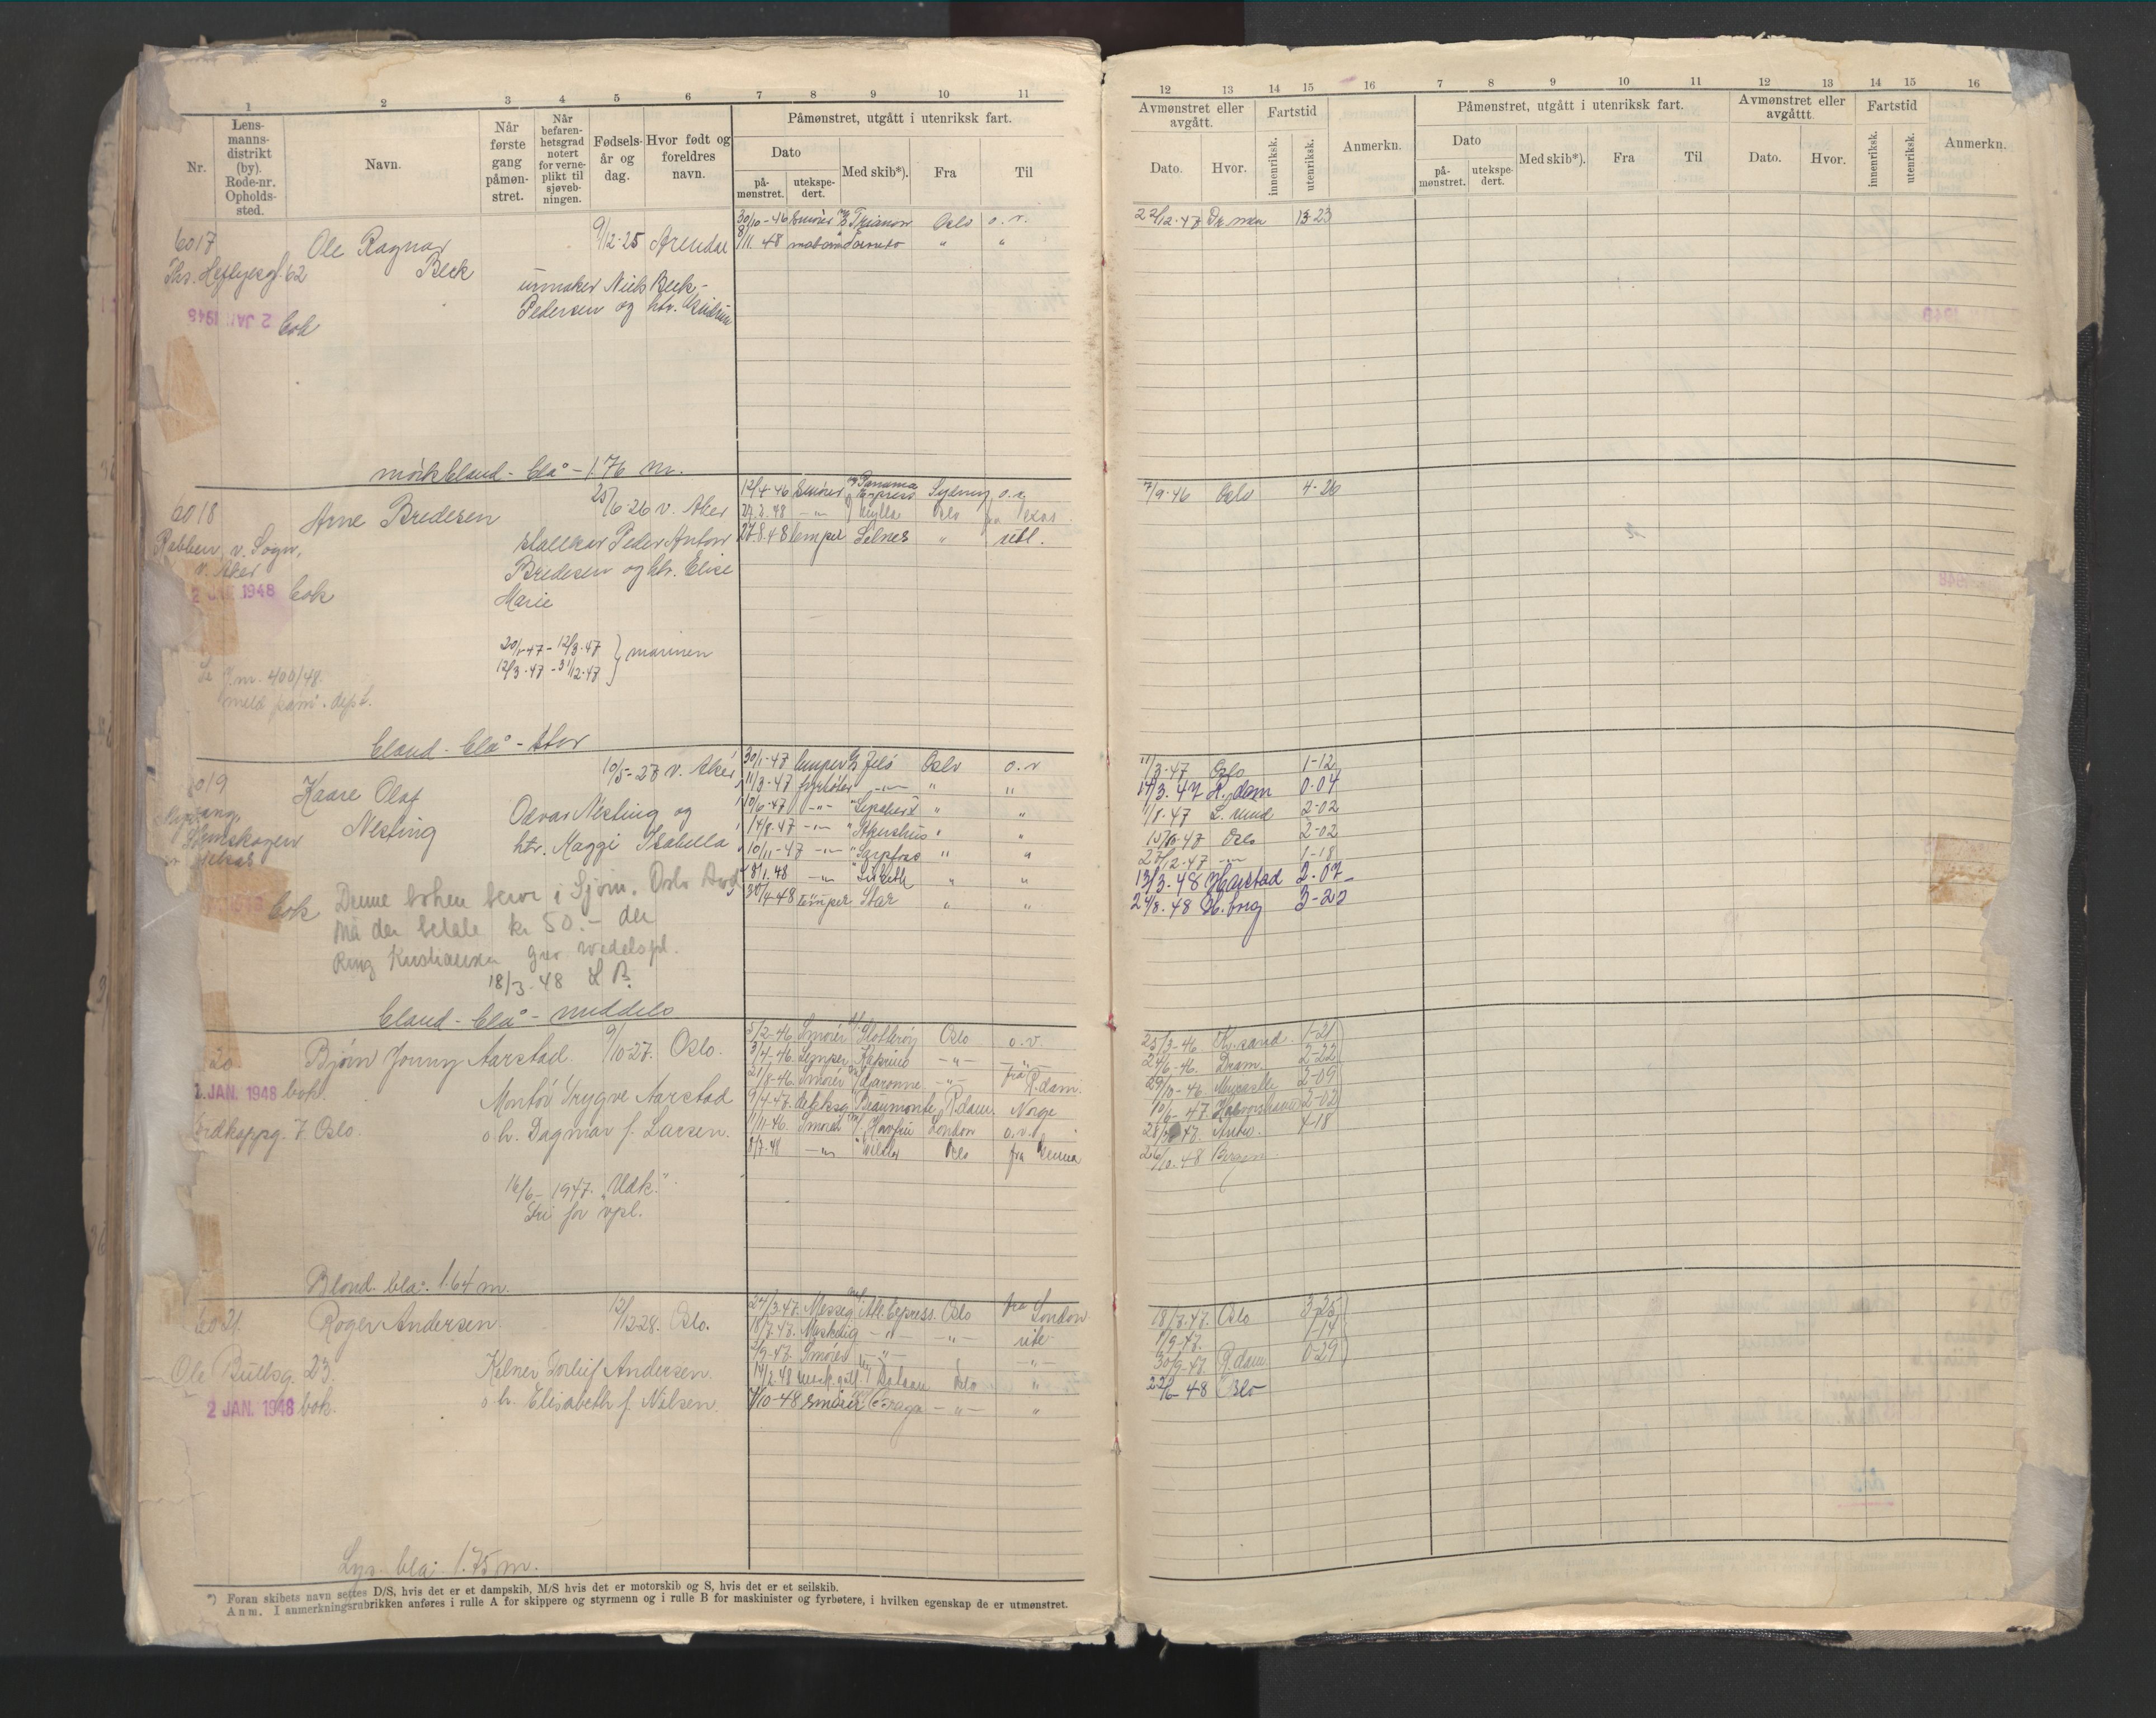 1 2 3 4 5 6 7 8 9 10 11
Nr.
Lens-
manns-
distrikt
(by).
Rode-nr.
Opholds-
sted.
Navn.
Når
første
gang
påmøn-
stret.
Når
befaren-
hetsgrad
notert
for verne-
plikt til
sjøveb-
ningen.
Fødsels-
år og
dag.
Hvor født og
foreldres
navn.
Påmønstret, utgått i utenriksk fart.
Dato
på-
mønstret.
utekspe-
dert.
Med skib*).
Fra
Til
6017
Ole Ragnar
Beck
9/12-25 Arendal
Ths. Heftyesgt. 62
urmaker Niels Beck-
Pedersen og htr. Gudrun
2 JAN 1948 bok
30/10-46 Smører M/S Trianon Oslo o.v.
8/11 48 " "
mørkblond - blå - 1.76 m.
6018
Arne Bredesen
25/6-26 v. Aker
Rabben v. Sogn,
v. Aker
Peder Anton
Bredesen og htr. Elise
Marie
2 JAN 1948 bok
20/1-47 - 12/3-47
12/3-47 - 31/12-47 } marinen
J.nr. 400/48.
12/4-46 Smører Panama Express Sydney o.v.
27.2.48 -"- Oslo fra
27.8.48 lemper Selnes " utl.
blond - blå - stor
6019
Kaare Olaf
Nesting
10/5-27 v. Aker
Oscar Nesting og
htr. Maggi Isabella
bok
Denne boken beror i Sjøm. Oslo
Må der betale kr 50.- der
Ring Kristiansen Grev Wedelspl.
18/3-48
30/1-47 lemper Oslo o.v
11/3-47 fyrbøter -"- " "
10/6-47 -"- " "
14/8-47 -"- " Akershus " "
10/11-47 -"- " Sarpfoss " "
8/1.48 -"- " Lisbeth " "
30/4-48 lemper Star " "
blond - blå - middels
20
Bjørn Jonny Aarstad.
9/10-27. Oslo.
2. JAN. 1948 bok.
Montør Trygve Aarstad
o h. Dagmar f. Larsen.
7. Oslo.
16/6-1947. "Udk."
Fri for vpl.
5/2-46. Smører Oslo o.v.
3/4-46. Lemper -"- "
21/8-46. Smører -"- fra R.dam.
9/4-47. Beaumonte R.dam. Norge
11/11-46. Smører Havfru London o.v.
8/7-48 -"- Oslo fra
Blond. blå. 1.64 m.
6021.
Roger Andersen
12/12-28. Oslo.
Ole Bullsg. 23.
Kelner Andersen
o h. Elisabeth f. Nilsen.
2 JAN. 1948 bok.
24/3-47. Messeg. Oslo fra London
18/7-47. -"- -"- ute
2/9-47. Smører -"- -"-
14/2.48 Oslo "
7/10-48 smører -"- "
Lys. blå. 1.75 m.
*) Foran skibets navn settes D/S, hvis det er et dampskib, M/S hvis det er motorskib og S, hvis det er et seilskib.
Anm. I anmerkningsrubrikken anføres i rulle A for skippere og styrmenn og i rulle B for maskinister og fyrbøtere, i hvilken egenskap de er utmønstret.
12 13 14 15 16 7 8 9 10 11 12 13 14 15 16
Avmønstret eller
avgått.
Dato. Hvor.
Fartstid
innenriksk.
utenriksk.
Anmerkn.
Påmønstret, utgått i utenriksk fart.
Dato
på-
mønstret.
utekspe-
dert.
Med skib*).
Fra
Til
Avmønstret eller
avgåttt.
Dato. Hvor.
Fartstid
innenriksk.
utenriksk.
Anmerkn.
22/12-47 13-23
7/9-46 Oslo 4-26
11/3-47 Oslo 1-12
14/3.47 R.dam 0.04
11/8-47 2-02
15/10-47 Oslo 2-02
27/12-47 -"- 1-18
13/3-48 Harstad 2.07
24/8.48 3-20
25/3-46 Kr.sand. 1-21
24/6-46. Dram. 2-22
29/10-46 Newcastle 2-09
10/6-47 2-02
Antw. 4-18
26/10.48 Bergen
18/7-47. Oslo 3-25
1/9-47. 1-14
30/9-47 R.dam 0-29
22/6-48 Oslo